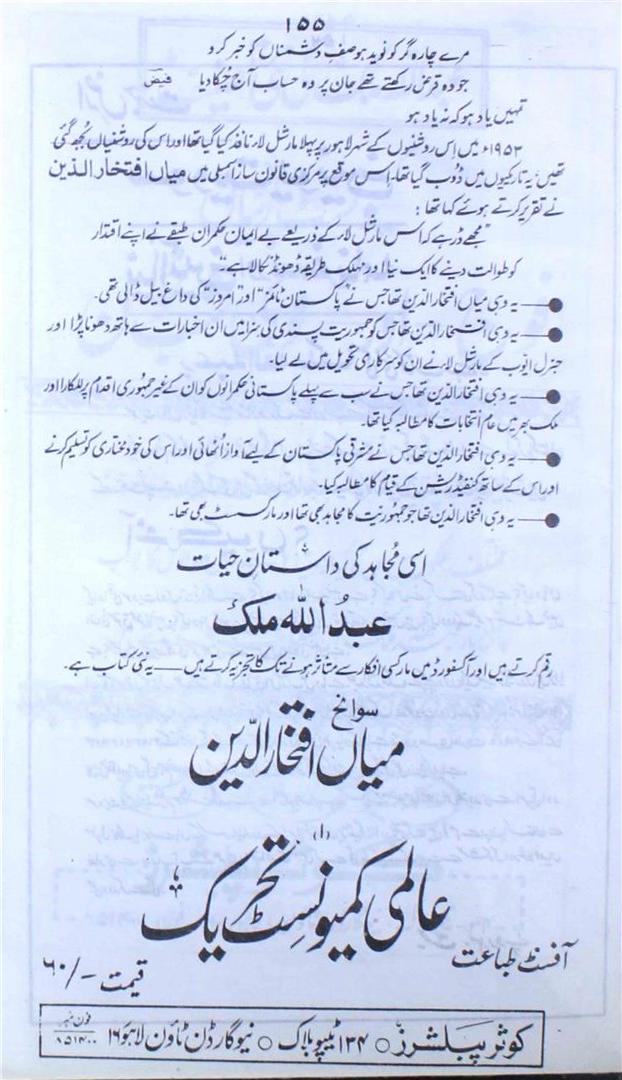 ۱۵۵
مرے چارہ گر کو نوید ہو صفِ دشمناں کو خبر کرو
جو وہ قرض رکھتے تھے جان پر وہ حساب آج چُکا دیا فیضؔ
تمہیں یاد ہو کہ نہ یاد ہو
۱۹۵۳ء میں اِس روشنیوں کے شہر لاہور پر پہلا مارشل لاء نافذ کیا گیا تھا اور اس کی روشنیاں بُجھ گئی
تھیں یہ تاریکیوں میں ڈوب گیا تھا۔ اِس موقع پر مرکزی قانون ساز اسمبلی میں میاں افتخار الدین
نے تقریر کرتے ہوئے کہا تھا :
”مجھے ڈر ہے کہ اس مارشل لاء کے ذریعے بے ایمان حکمران طبقے نے اپنے اقتدار
کو طوالت دینے کا ایک نیا اور مہلک طریقہ ڈھونڈ نکالا ہے“۔
●— یہ وہی میاں افتخار الدین تھا جس نے ”پاکستان ٹائمز“ اور ”امروز“ کی داغ بیل ڈالی تھی۔
●— یہ وہی افتخار الدین تھا جس کو جمہوریت پسندی کی سزا میں ان اخبارات سے ہاتھ دھونا پڑا اور
جنرل ایوب کے مارشل لاء نے ان کو سرکاری تحویل میں لے لیا۔
●— یہ وہی افتخار الدین تھا جس نے سب سے پہلے پاکستانی حکمرانوں کو ان کے غیر جمہوری اقدام پر للکارا اور
ملک بھر میں عام انتخابات کا مطالبہ کیا تھا۔
●— یہ وہی افتخار الدین تھا جس نے مشرقی پاکستان کے لیے آواز اُٹھائی اور اس کی خود مختاری کو تسلیم کرنے
اور اس کے ساتھ کنفیڈریشن کے قیام کا مطالبہ کیا۔
●— یہ وہی افتخار الدین تھا جو جمہوریت کا مجاہد بھی تھا اور مارکسسٹ بھی تھا۔
اسی مُجاہد کی داستانِ حیات
عبدُ اللہ ملک
رقم کرتے ہیں اور آکسفورڈ میں مارکسی افکار سے متأثر ہونے تک کا تجزیہ کرتے ہیں — یہ نئی کتاب ہے۔
سوانح
میاں افتخار الدّین
(۱)
عالمی کمیونسٹ تحریک
آفسٹ طباعت
قیمت -/۶۰
کوثر پبلشرز ○ ۱۳۴ ٹیپو بلاک ○ نیو گارڈن ٹاؤن لاہور ۱۶
فون نمبر
۸۵۱۴۰۰